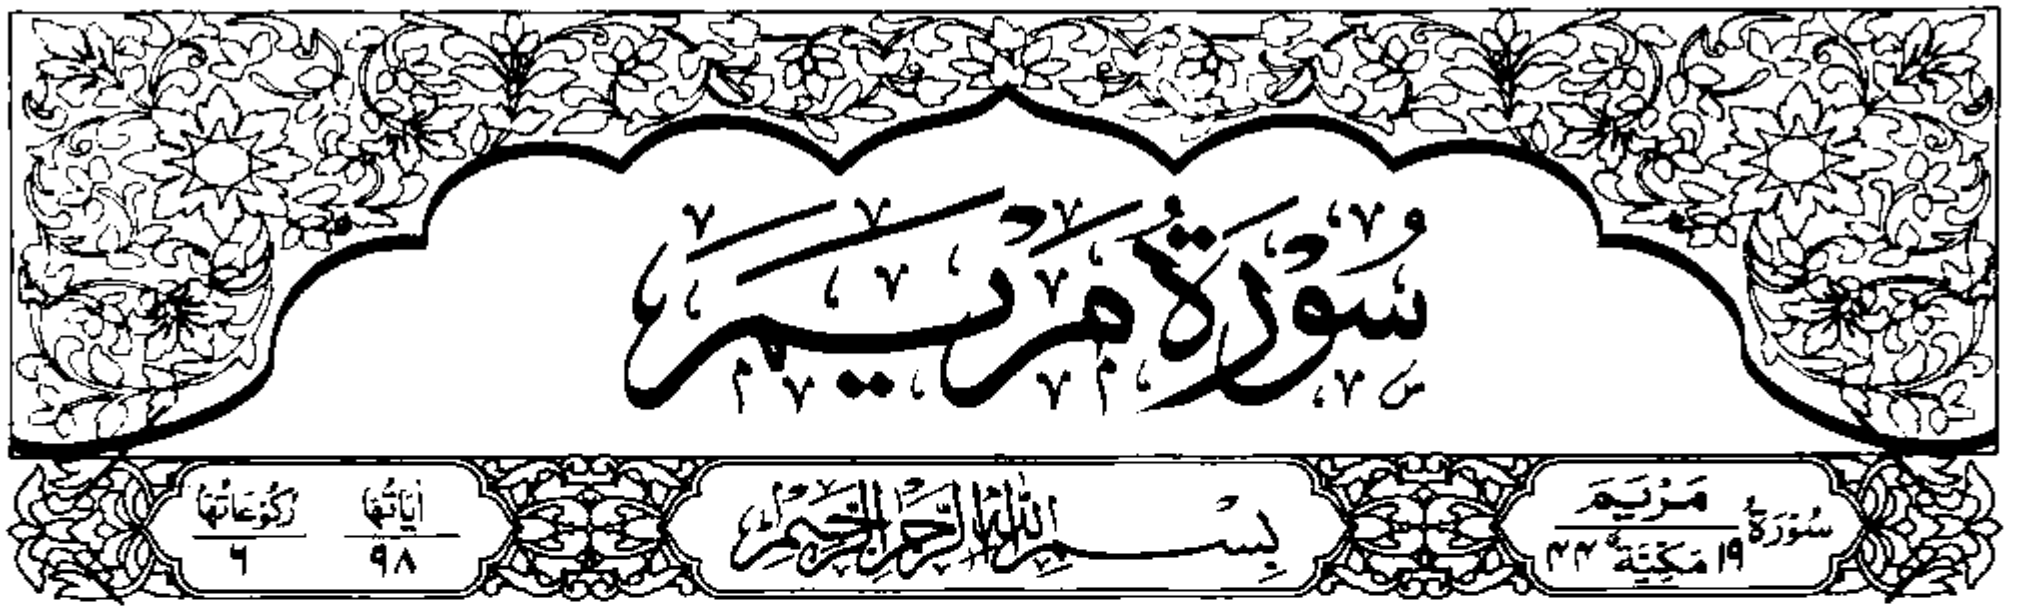 سُوْرَةُ مَرْيَمَ
سُوْرَةُ مَرْيَمَ ١٩ مَكِّيَّةٌ ٤٤
بِسْمِ اللّٰهِ الرَّحْمٰنِ الرَّحِيْمِ
اٰيَاتُهَا ٩٨
رُكُوْعَاتُهَا ٦